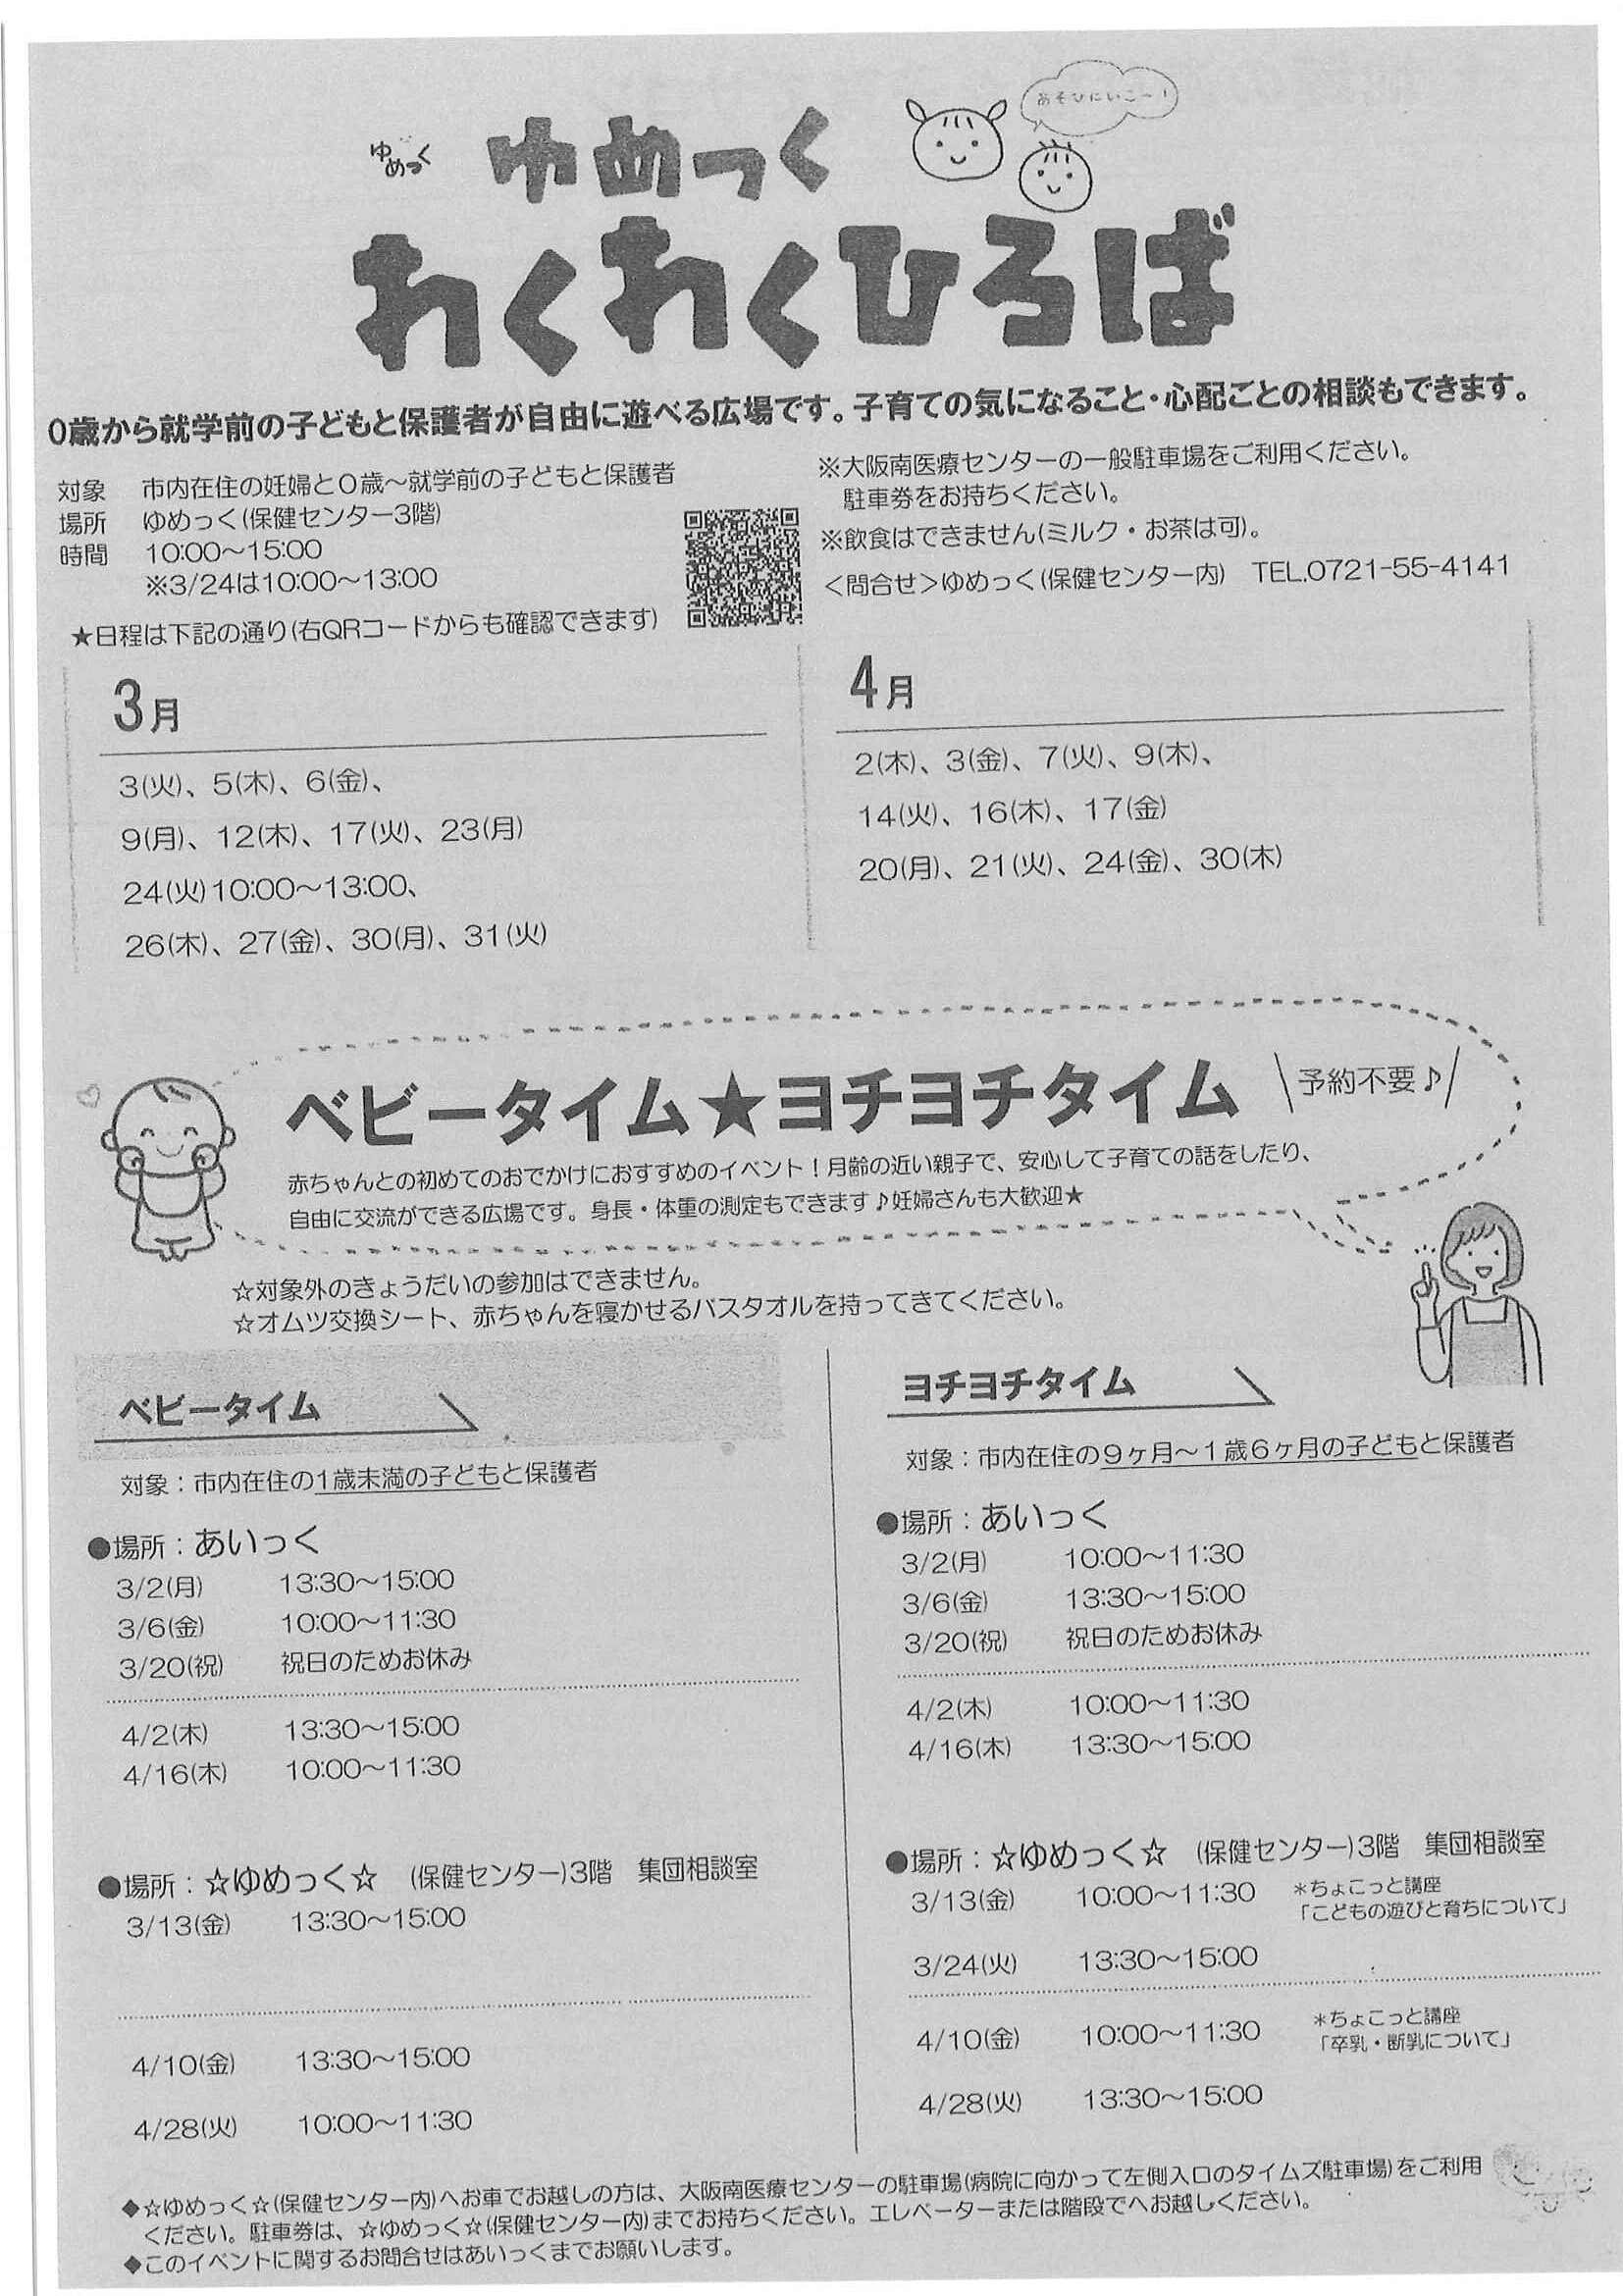 あそびにいこ〜！
ゆめっく
ゆめっく
わくわくひろば
0歳から就学前の子どもと保護者が自由に遊べる広場です。子育ての気になること・心配ごとの相談もできます。
対象　市内在住の妊婦と0歳〜就学前の子どもと保護者
場所　ゆめっく(保健センター3階)
時間　10:00〜15:00
※3/24は10:00〜13:00
★日程は下記の通り(右QRコードからも確認できます)
※大阪南医療センターの一般駐車場をご利用ください。
駐車券をお持ちください。
※飲食はできません(ミルク・お茶は可)。
＜問合せ＞ゆめっく(保健センター内)　TEL.0721-55-4141
3月
3(火)、5(木)、6(金)、
9(月)、12(木)、17(火)、23(月)
24(火)10:00〜13:00、
26(木)、27(金)、30(月)、31(火)
4月
2(木)、3(金)、7(火)、9(木)、
14(火)、16(木)、17(金)
20(月)、21(火)、24(金)、30(木)
ベビータイム★ヨチヨチタイム
予約不要♪
赤ちゃんとの初めてのおでかけにおすすめのイベント！月齢の近い親子で、安心して子育ての話をしたり、
自由に交流ができる広場です。身長・体重の測定もできます♪妊婦さんも大歓迎★
☆対象外のきょうだいの参加はできません。
☆オムツ交換シート、赤ちゃんを寝かせるバスタオルを持ってきてください。
ベビータイム
対象：市内在住の1歳未満の子どもと保護者
●場所：あいっく
3/2(月)　13:30〜15:00
3/6(金)　10:00〜11:30
3/20(祝)　祝日のためお休み
4/2(木)　13:30〜15:00
4/16(木)　10:00〜11:30
●場所：☆ゆめっく☆　(保健センター)3階　集団相談室
3/13(金)　13:30〜15:00
4/10(金)　13:30〜15:00
4/28(火)　10:00〜11:30
ヨチヨチタイム
対象：市内在住の9ヶ月〜1歳6ヶ月の子どもと保護者
●場所：あいっく
3/2(月)　10:00〜11:30
3/6(金)　13:30〜15:00
3/20(祝)　祝日のためお休み
4/2(木)　10:00〜11:30
4/16(木)　13:30〜15:00
●場所：☆ゆめっく☆　(保健センター)3階　集団相談室
3/13(金)　10:00〜11:30　＊ちょこっと講座
「こどもの遊びと育ちについて」
3/24(火)　13:30〜15:00
4/10(金)　10:00〜11:30　＊ちょこっと講座
「卒乳・断乳について」
4/28(火)　13:30〜15:00
◆☆ゆめっく☆(保健センター内)へお車でお越しの方は、大阪南医療センターの駐車場(病院に向かって左側入口のタイムズ駐車場)をご利用
ください。駐車券は、☆ゆめっく☆(保健センター内)までお持ちください。エレベーターまたは階段でへお越しください。
◆このイベントに関するお問合せはあいっくまでお願いします。